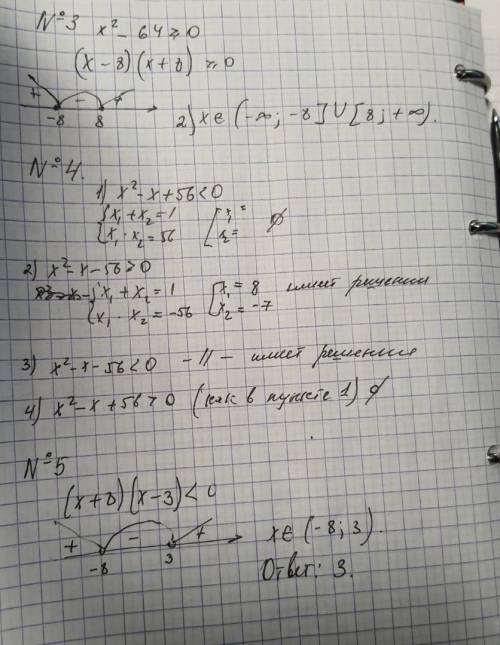 №3 x² - 64 ≥ 0
(x - 8)(x + 8) ≥ 0
+ - +
-8 8
2) x ∈ (-∞; -8] ∪ [8; +∞).
№4.
1) x² - x + 56 < 0
{ x₁ + x₂ = 1 [ x₁ =
{ x₁ · x₂ = 56 [ x₂ = ∅
2) x² - x - 56 > 0
{ x₁ + x₂ = 1 [ x₁ = 8 имеет решения
{ x₁ · x₂ = -56 [ x₂ = -7
3) x² - x - 56 < 0 - 11 - имеет решения
4) x² - x + 56 > 0 (как в пункте 1) ∅
№5
(x + 8)(x - 3) < 0
+ - +
-8 3
x ∈ (-8; 3).
Ответ: 3.